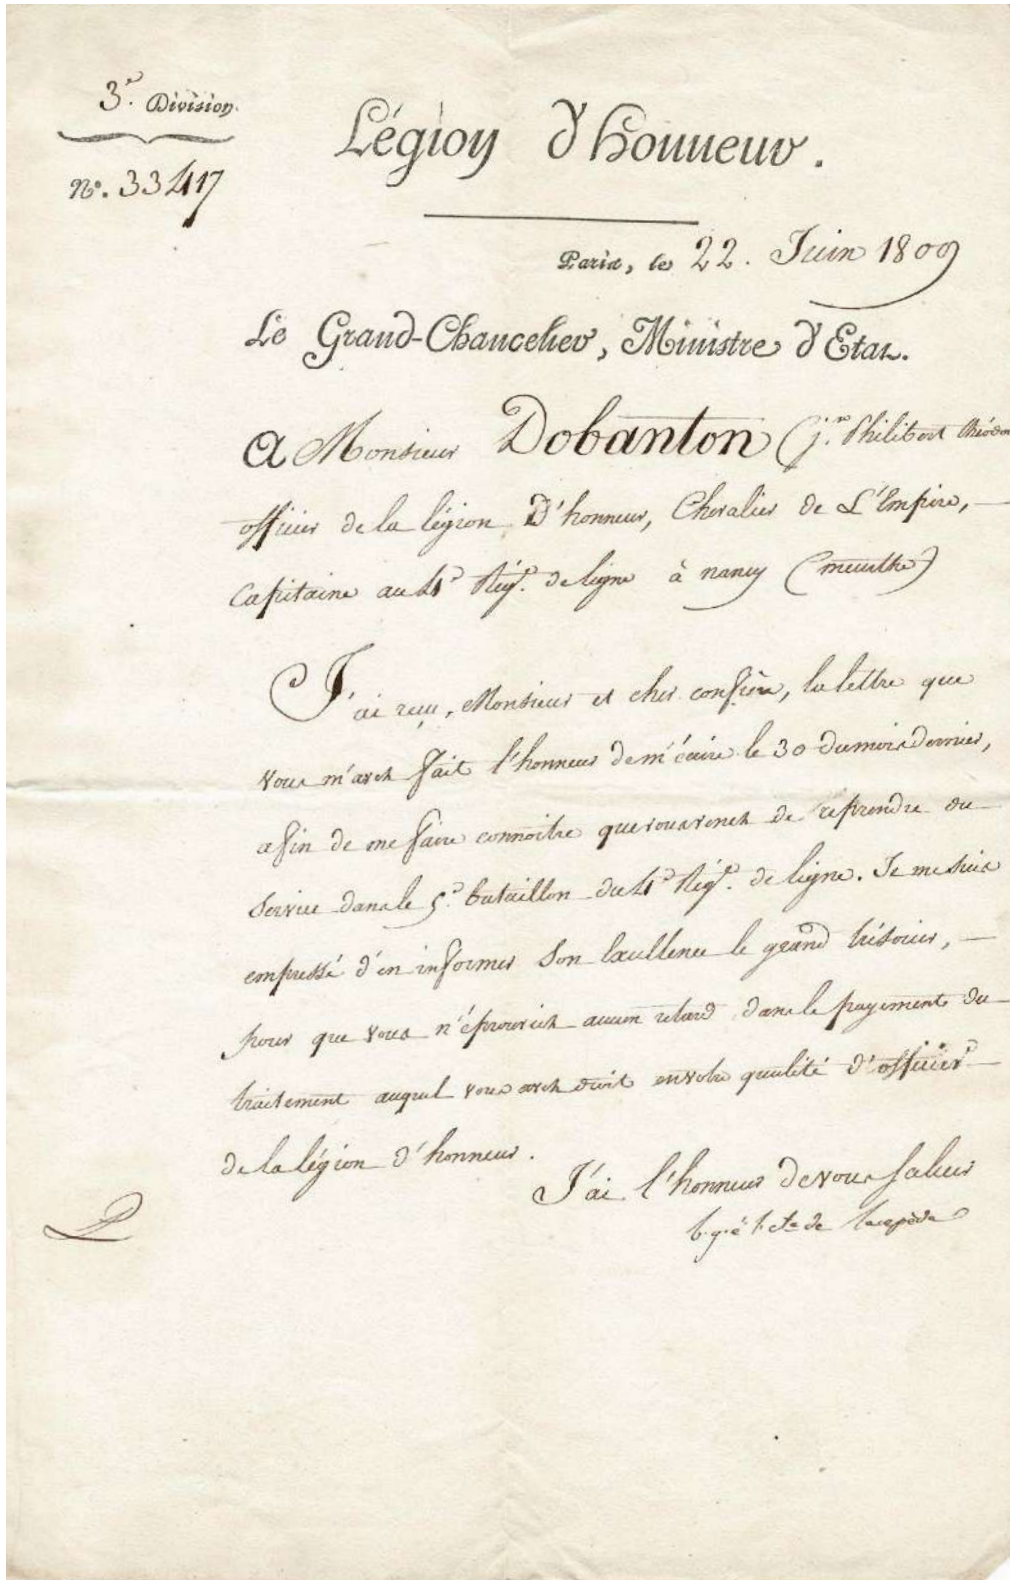 3e. Division.
No. 33417
Légion d'honneur.
Paris, le 22. Juin 1809
Le Grand-Chancelier, Ministre d'Etat.
A Monsieur Dobanton (jn. Philibert Théodo
officier de la légion D'honneur, Chevalier de L'Empire,
Capitaine au 4e Régt. de ligne à nancy (meurthe)
J'ai reçu, Monsieur et cher confrère, la lettre que
vous m'avez fait l'honneur de m'écrire le 30 du mois dernier,
afin de me faire connoitre que vous venez de reprendre du
service dans le 5e. bataillon du 4e Régt. de ligne. Je me suis
empressé d'en informer Son Excellence le grand trésorier,
pour que vous n'éprouviez aucun retard dans le payement du
traitement auquel vous avez droit en votre qualité d'officier
de la légion d'honneur.
J'ai l'honneur de vous saluer
b. g. é. l. cte de lacepède